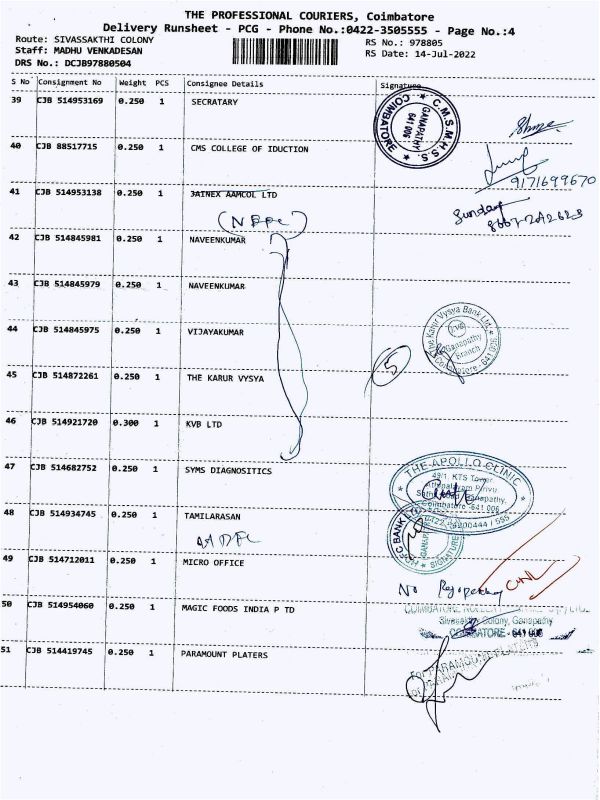 THE PROFESSIONAL COURIERS, Coimbatore
Delivery Runsheet - PCG - Phone No.:0422-3505555 - Page No.:4
Route: SIVASSAKTHI COLONY
RS No.: 978805
Staff: MADHU VENKADESAN
RS Date: 14-Jul-2022
DRS No.: DCJB97880504
S No Consignment No Weight PCS Consignee Details Signature
39 CJB 514953169 0.250 1 SECRATARY
C.M.S.M.H.S.S.
GANAPATHY
641 006
COIMBATORE
40 CJB 88517715 0.250 1 CMS COLLEGE OF IDUCTION
9171699670
41 CJB 514953138 0.250 1 JAINEX AAMCOL LTD
42 CJB 514845981 0.250 1 NAVEENKUMAR
43 CJB 514845979 0.250 1 NAVEENKUMAR
44 CJB 514845975 0.250 1 VIJAYAKUMAR
The Karur Vysya Bank Ltd.
KVB
Ganapathy
Branch
Coimbatore - 641 006
5
45 CJB 514872261 0.250 1 THE KARUR VYSYA
46 CJB 514921720 0.300 1 KVB LTD
47 CJB 514682752 0.250 1 SYMS DIAGNOSITICS
THE APOLLO CLINIC
49/1, KTS Tower
Ganapathy,
Coimbatore - 641 006
48 CJB 514934745 0.250 1 TAMILARASAN
HDFC BANK
SIGNATURE
49 CJB 514712011 0.250 1 MICRO OFFICE
No
50 CJB 514954060 0.250 1 MAGIC FOODS INDIA P TD
Sivasakthi Colony, Ganapathy
COIMBATORE - 641 006
51 CJB 514419745 0.250 1 PARAMOUNT PLATERS
For PARAMOUNT PLATERS